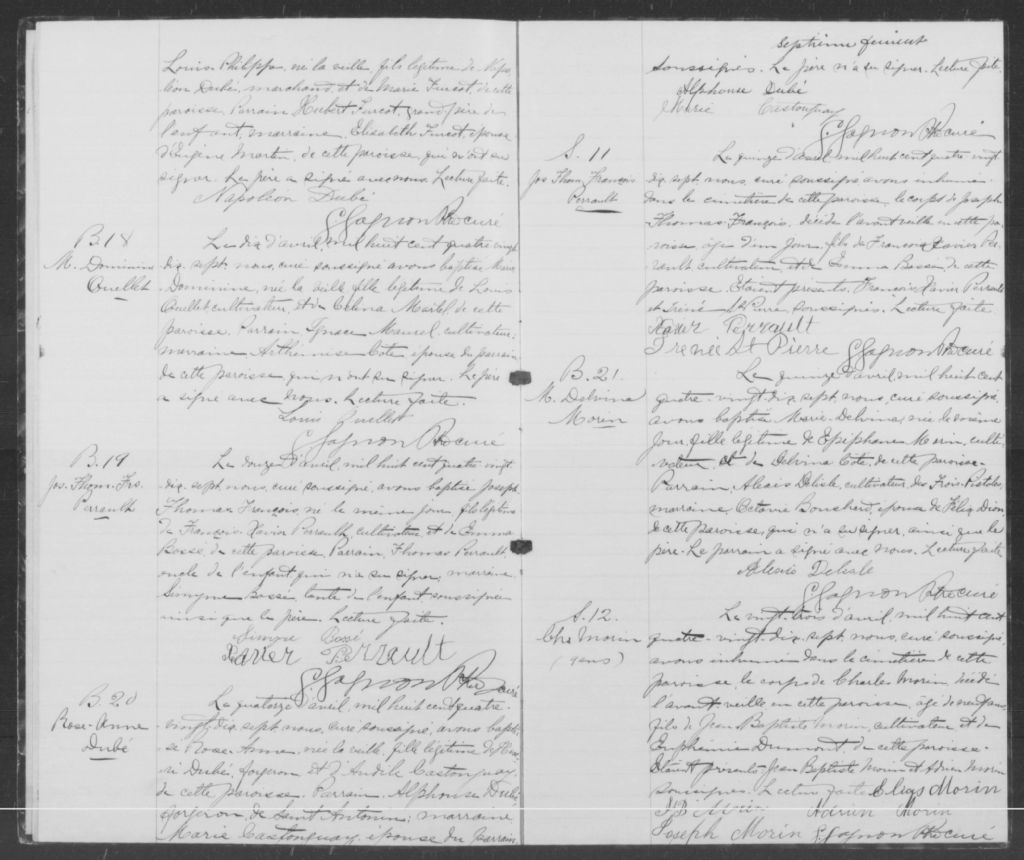 Louis Philippe, né la veille, fils légitime de Napo
léon Dubé, marchand, et de Marie Turcot, de cette
paroisse. Parrain Hubert Turcot, grand'père de
l'enfant, marraine, Elisabeth Turcot épouse
d'Eugène Martin, de cette paroisse, qui n'ont su
signer. Le père a signé avec nous. Lecture faite.
Napoléon Dubé
G. Gagnon Ptre curé
B. 18
M. Domini
Ouellet
Le dix d'avril, mil huit cent quatre vingt
dix sept, nous, curé soussigné avons baptisé Marie
Dominine, née la veille, fille légitime de Louis
Ouellet cultivateur, et de Célina Martel de cette
paroisse. Parrain Ignace Manuel, cultivateur,
marraine Arthémise Coté, épouse du parrain
de cette paroisse qui n'ont su signer. Le père
a signé avec nous. Lecture faite.
Louis Ouellet
G. Gagnon Ptre curé
B. 19
Jos. Thom. Frs.
Perrault
Le douze d'avril, mil huit cent quatre vingt
dix sept, nous, curé soussigné, avons baptisé Joseph
Thomas François né le même jour, fils légitime
de François Xavier Perrault, cultivateur et de Emma
Bossé, de cette paroisse. Parrain, Thomas Perrault
oncle de l'enfant qui n'a su signer, marraine
Bossé, tante de l'enfant soussignée
ainsi que le père. Lecture faite.
Bossé
Xavier Perrault
G. Gagnon Ptre curé
B. 20
Rose-Anne
Dubé
Le quatorze d'avril, mil huit cent quatre-
vingt dix sept, nous, curé soussigné, avons bapti-
sé Rose-Anne, née la veille, fille légitime de
Dubé, forgeron et d' Castonguay,
de cette paroisse. Parrain, Alphonse Dubé
forgeron, de Saint Antonin; marraine
Marie Castonguay, épouse du parrain
septième feuillet
soussignés. Le père n'a su signer. Lecture faite.
Alphonse Dubé
Marie Castonguay
G. Gagnon Ptre curé
S. 11
Jos Thom. François
Perrault
Le quinze d'avril, mil huit cent quatre vingt
dix sept, nous, curé soussigné avons inhumé
dans le cimetière de cette paroisse, le corps de Joseph
Thomas François, décédé l'avant veille en cette pa-
roisse, âgé d'un jour, fils de François Xavier Per-
rault, cultivateur, et de Emma Bossé de cette
paroisse. Etaient présents, François Xavier Perrault
et Irénée St Pierre, soussignés. Lecture faite.
Xavier Perrault
Irenée St Pierre G. Gagnon Ptre curé
B. 21.
M. Delvina
Morin
Le quinze d'avril, mil huit cent
quatre-vingt dix sept, nous, curé soussigné,
avons baptisé Marie Delvina, née le même
jour, fille légitime de Epiphane Morin, culti-
vateur, et de Delvina Coté, de cette paroisse.
Parrain, Alexis Delisle, cultivateur, des Trois-Pistoles,
marraine Octavie Bouchard, épouse de Félix Dion
de cette paroisse, qui n'a su signer, ainsi que le
père. Le parrain a signé avec nous. Lecture faite
Alexis Delisle
G. Gagnon Ptre curé
S. 12.
Chs Morin
Le vingt-trois d'avril, mil huit cent
quatre-vingt dix sept, nous, curé soussigné,
avons inhumé dans le cimetière de cette
paroisse le corps de Charles Morin, décédé
l'avant veille, en cette paroisse, âgé de
fils de Jean Baptiste Morin, cultivateur et de
Euphémie Dumont, de cette paroisse.
Etaient présents Jean Baptiste Morin et Adrien Morin
soussignés. Lecture faite Morin
J B Morin Adrien Morin
Joseph Morin G. Gagnon Ptre curé